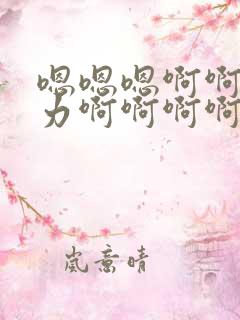 嗯嗯嗯啊啊
力啊啊啊啊
岚意晴